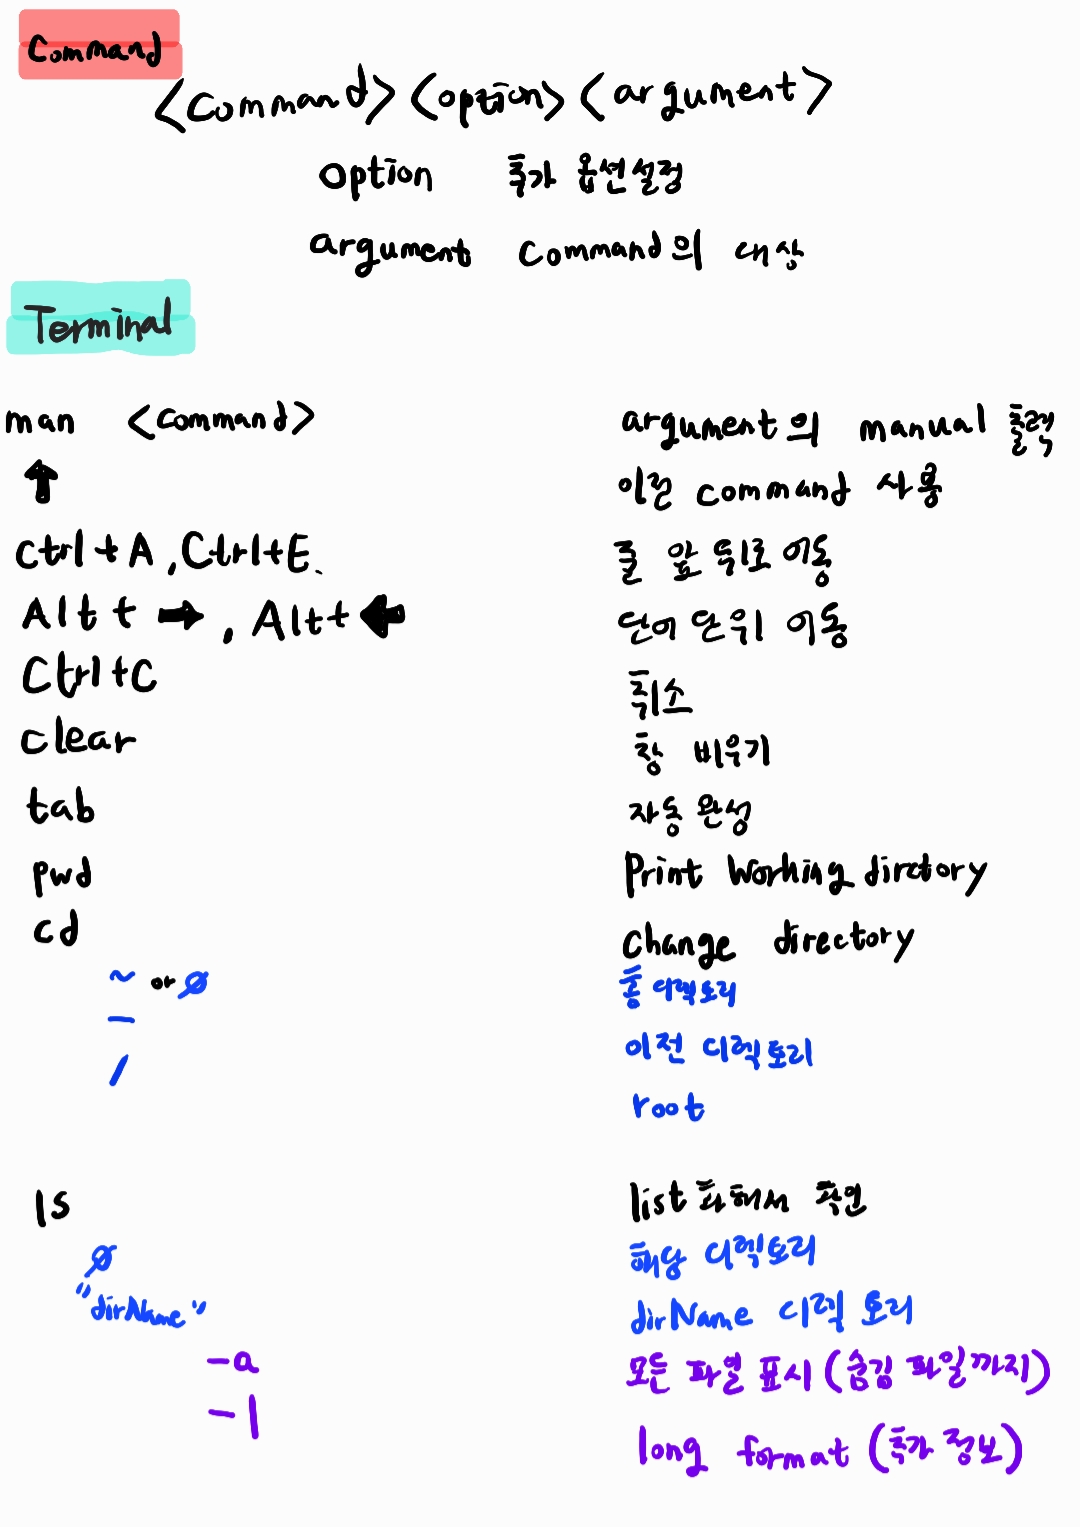 Command
<Command> <option> <argument>
option 추가 옵션 설정
argument Command의 대상
Terminal
man <Command> argument의 manual 출력
↑ 이전 command 사용
Ctrl+A, Ctrl+E 줄 앞 뒤로 이동
Alt + →, Alt + ← 단어 단위 이동
Ctrl+C 취소
clear 창 비우기
tab 자동 완성
pwd Print Working dirctory
cd change directory
~ or ∅ 홈 디렉토리
- 이전 디렉토리
/ root
ls list 화해서 확인
∅ 해당 디렉토리
"dirName" dirName 디렉토리
-a 모든 파일 표시 (숨김 파일까지)
-l long format (추가 정보)